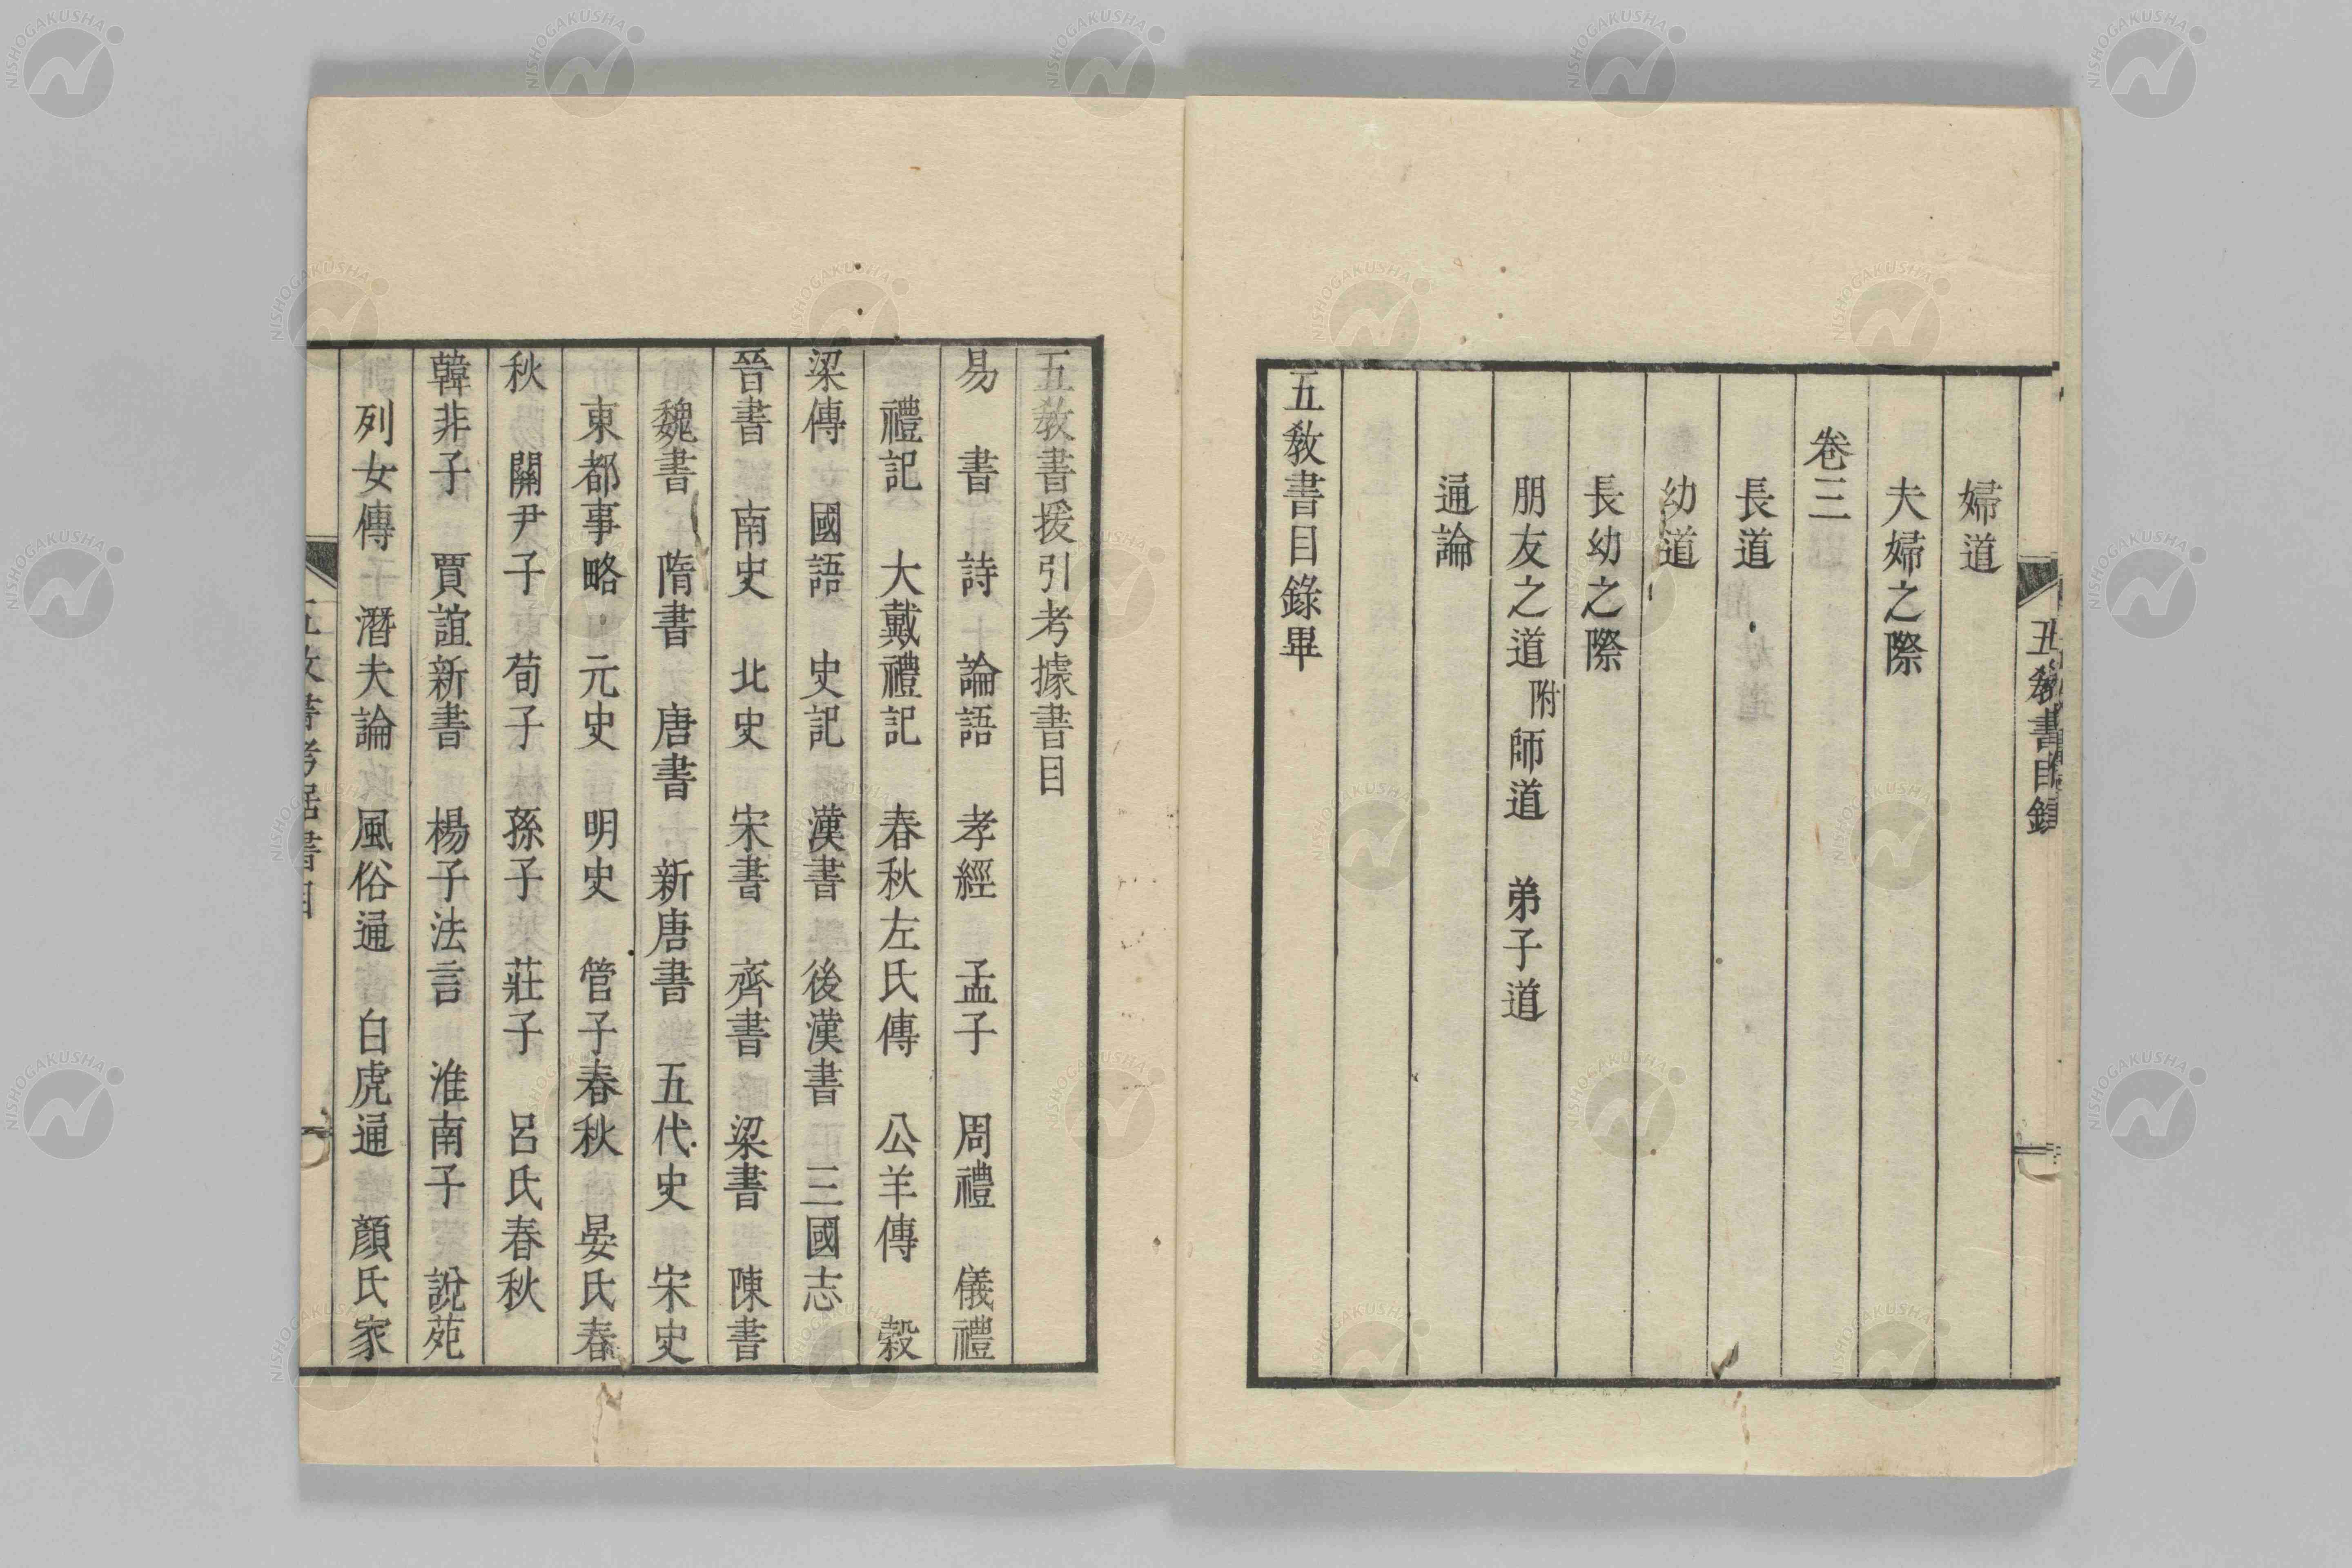 婦道
夫婦之際
卷三
長道
幼道
長幼之際
朋友之道 附 師道 弟子道
通論
五敎書目錄畢
五敎書目錄
五敎書援引考據書目
易 書 詩 論語 孝經 孟子 周禮 儀禮
禮記 大戴禮記 春秋左氏傳 公羊傳 穀
梁傳 國語 史記 漢書 後漢書 三國志
晉書 南史 北史 宋書 齊書 梁書 陳書
魏書 隋書 唐書 新唐書 五代史 宋史
東都事略 元史 明史 管子春秋 晏氏春
秋 關尹子 荀子 孫子 莊子 呂氏春秋
韓非子 賈誼新書 楊子法言 淮南子 說苑
列女傳 潛夫論 風俗通 白虎通 顏氏家
NISHOGAKUSHA